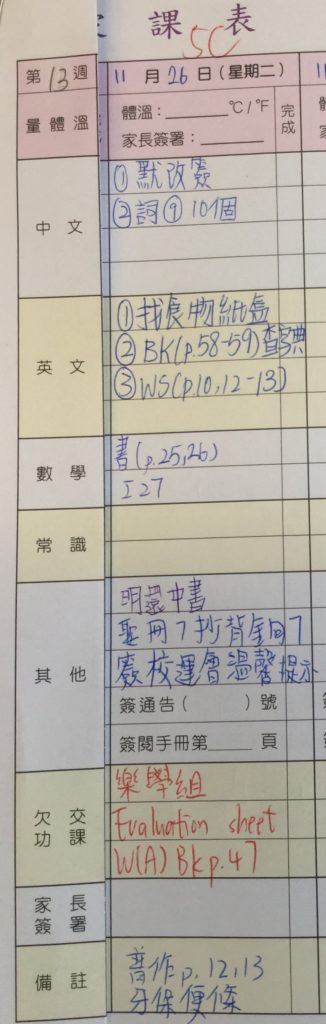 課表
5C
第13週
11月26日(星期二)
量體溫
體溫:______°C/°F
家長簽署:______
完成
中文
①默改簽
②詞⑨10個
英文
①找食物紙盒
②BK(p.58-59)查字典
③WS(p.10,12-13)
數學
書(p.25,26)
I27
常識
其他
明還中書
聖冊7抄背金句7
簽校運會溫馨提示
簽通告( )號
簽閱手冊第____頁
欠交功課
樂學組
Evaluation sheet
W(A) Bk p.47
家長簽署
備註
普作p.12,13
分保便條